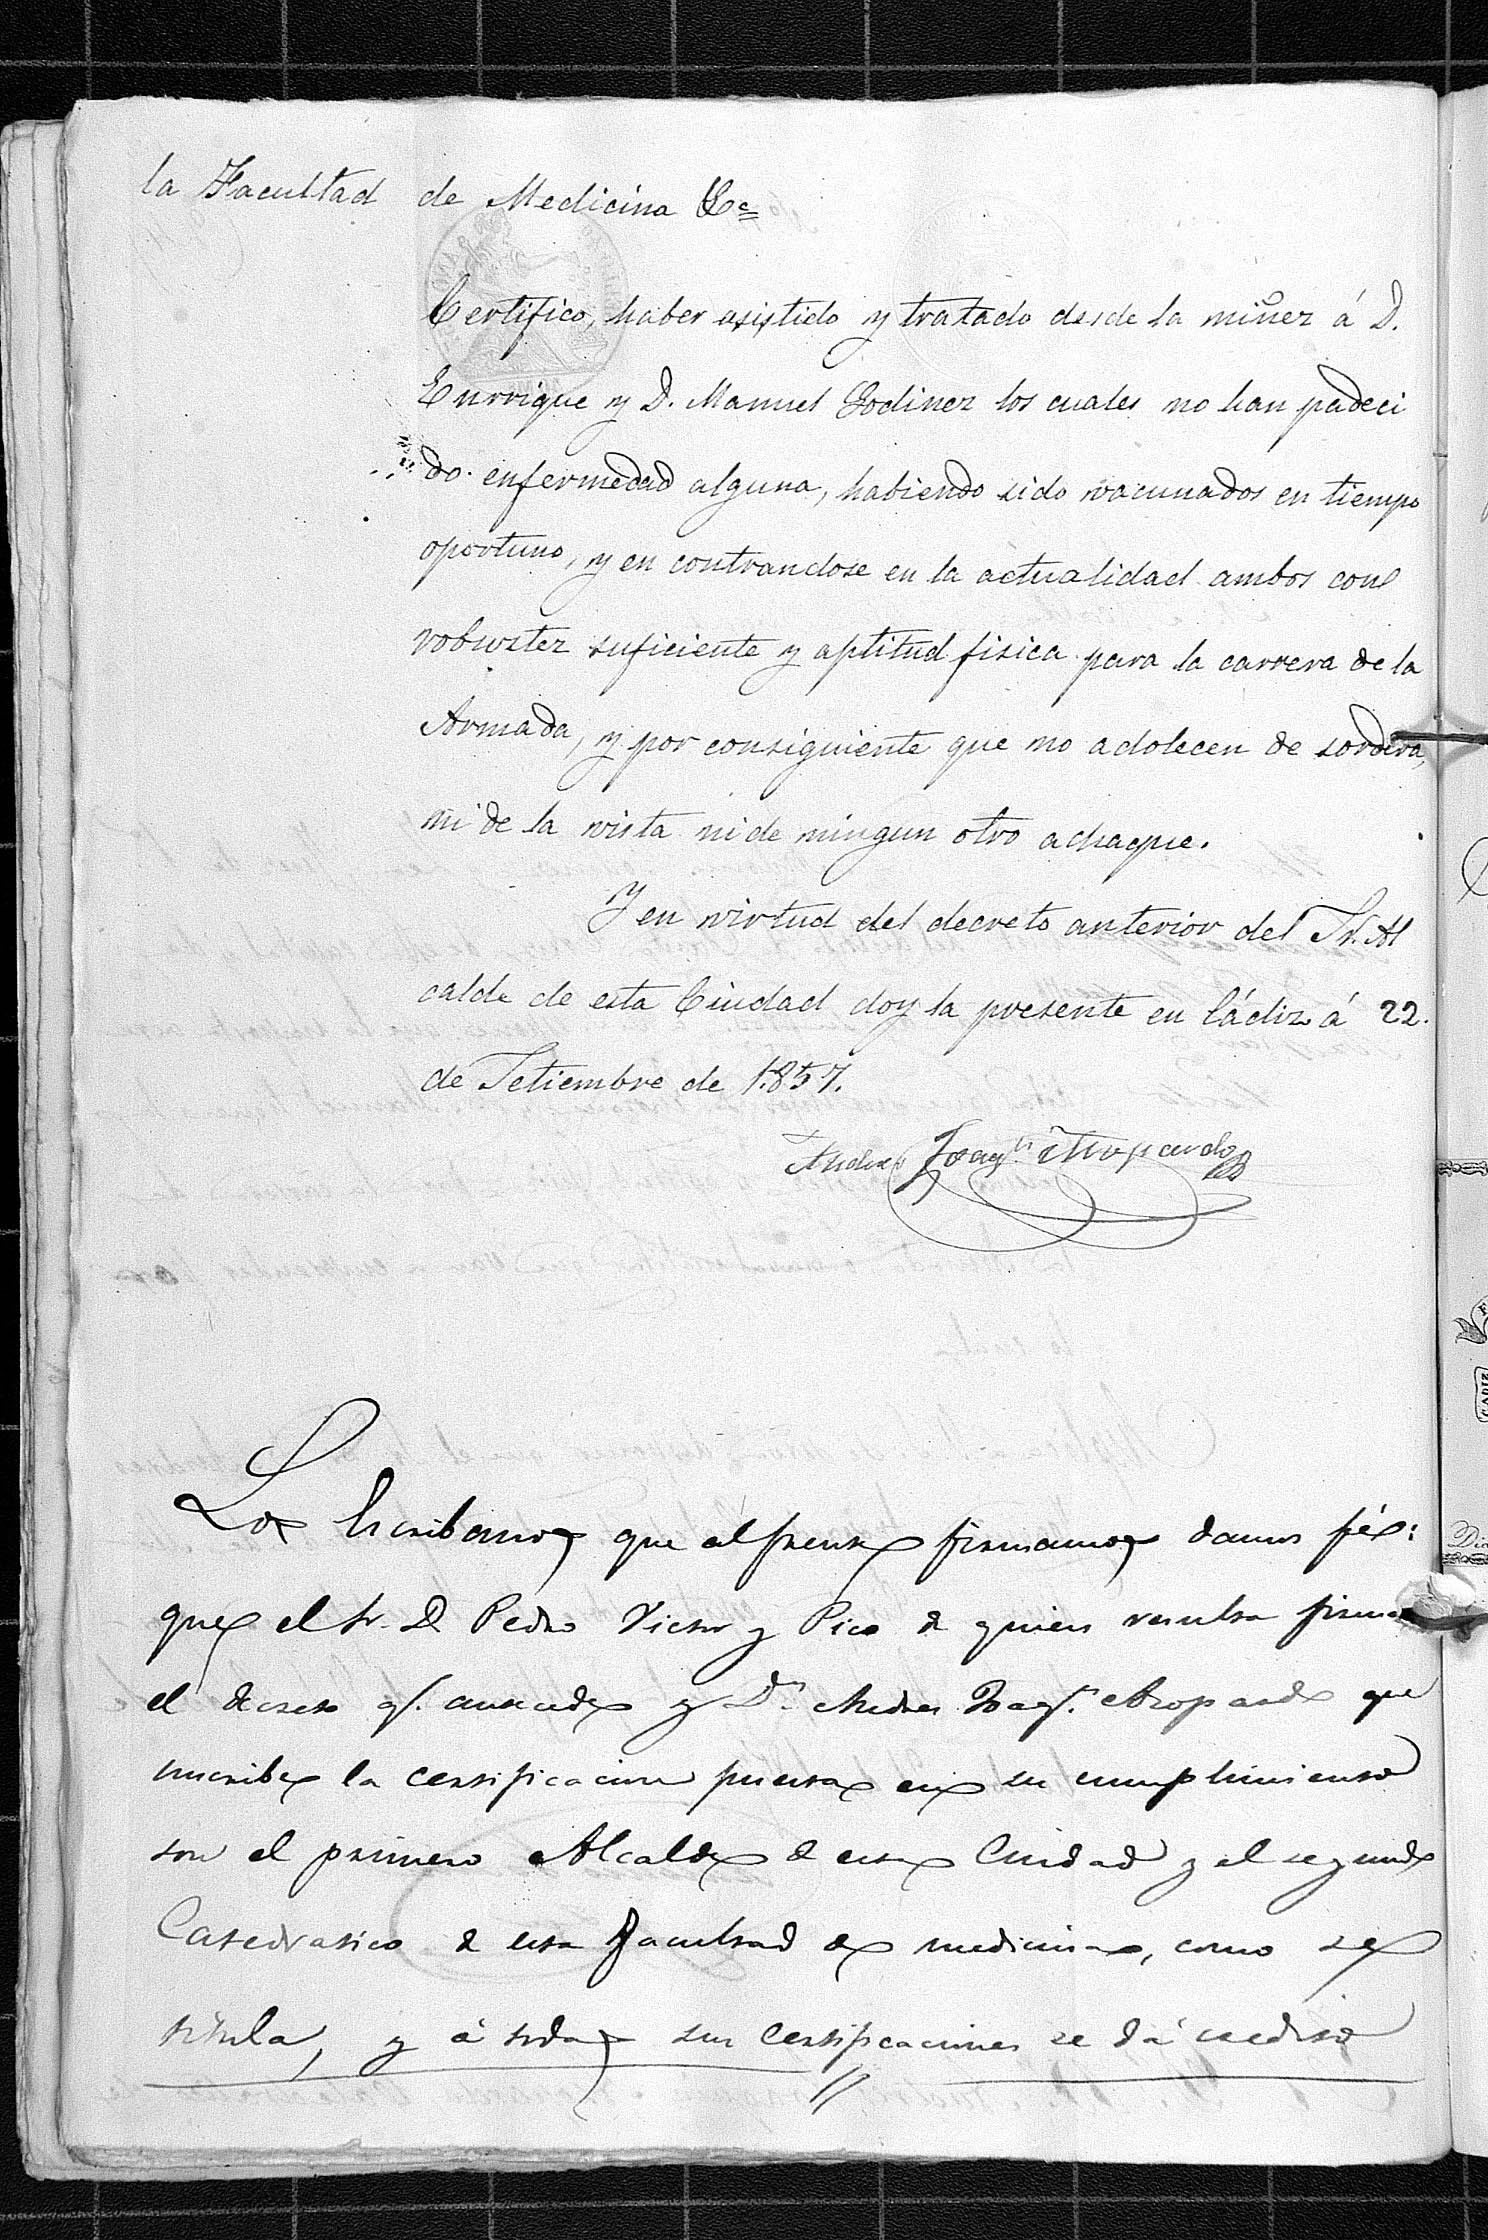 la Facultad de Medicina &c
Certifico, haber asistido y tratado desde la niñez á D.
Enrrique y D. Manuel Godinez los cuales no han padeci
do enfermedad alguna, habiendo sido vacunados en tiempo
oportuno, y en contrandose en la actualidad ambos con
robustez suficiente y aptitud fisica para la carrera de la
Armada, y por consiguiente que no adolecen de sordera,
ni de la vista ni de ningun otro achaque.
Y en virtud del decreto anterior del Sr. Al
calde de esta Ciudad doy la presente en Cádiz á 22.
de Setiembre de 1.857.
Andres Joaqn. Azopardo
Los Escribanos que al frente firmamos damos fé:
que el Sr. D Pedro Victor y Pico de quien resulta firmado
el decreto q. antecede y Dn. Andres Joaqn. Azopardo que
suscribe la certificacion puesta en su cumplimiento
son el primero Alcalde de esta Ciudad y el segundo
Catedratico de esta Facultad de medicina, como se
titula, y á todas sus certificaciones se dá credito